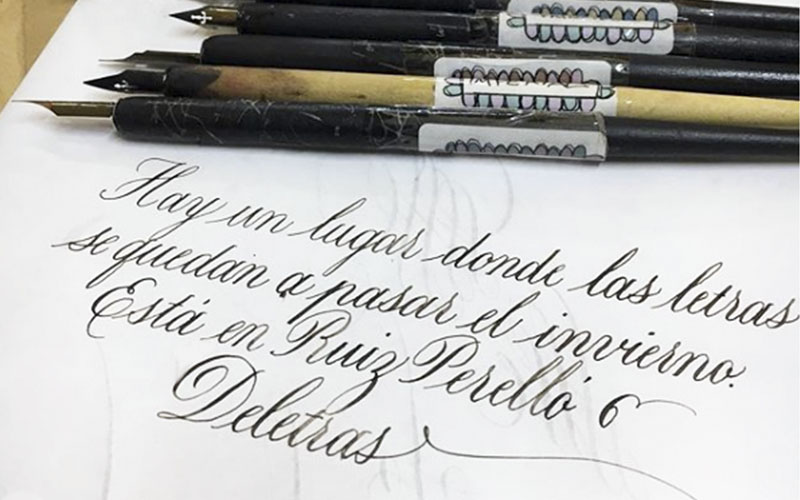 Hay un lugar donde las letras
se quedan a pasar el invierno.
Está en Ruiz Perelló 6
Deletras